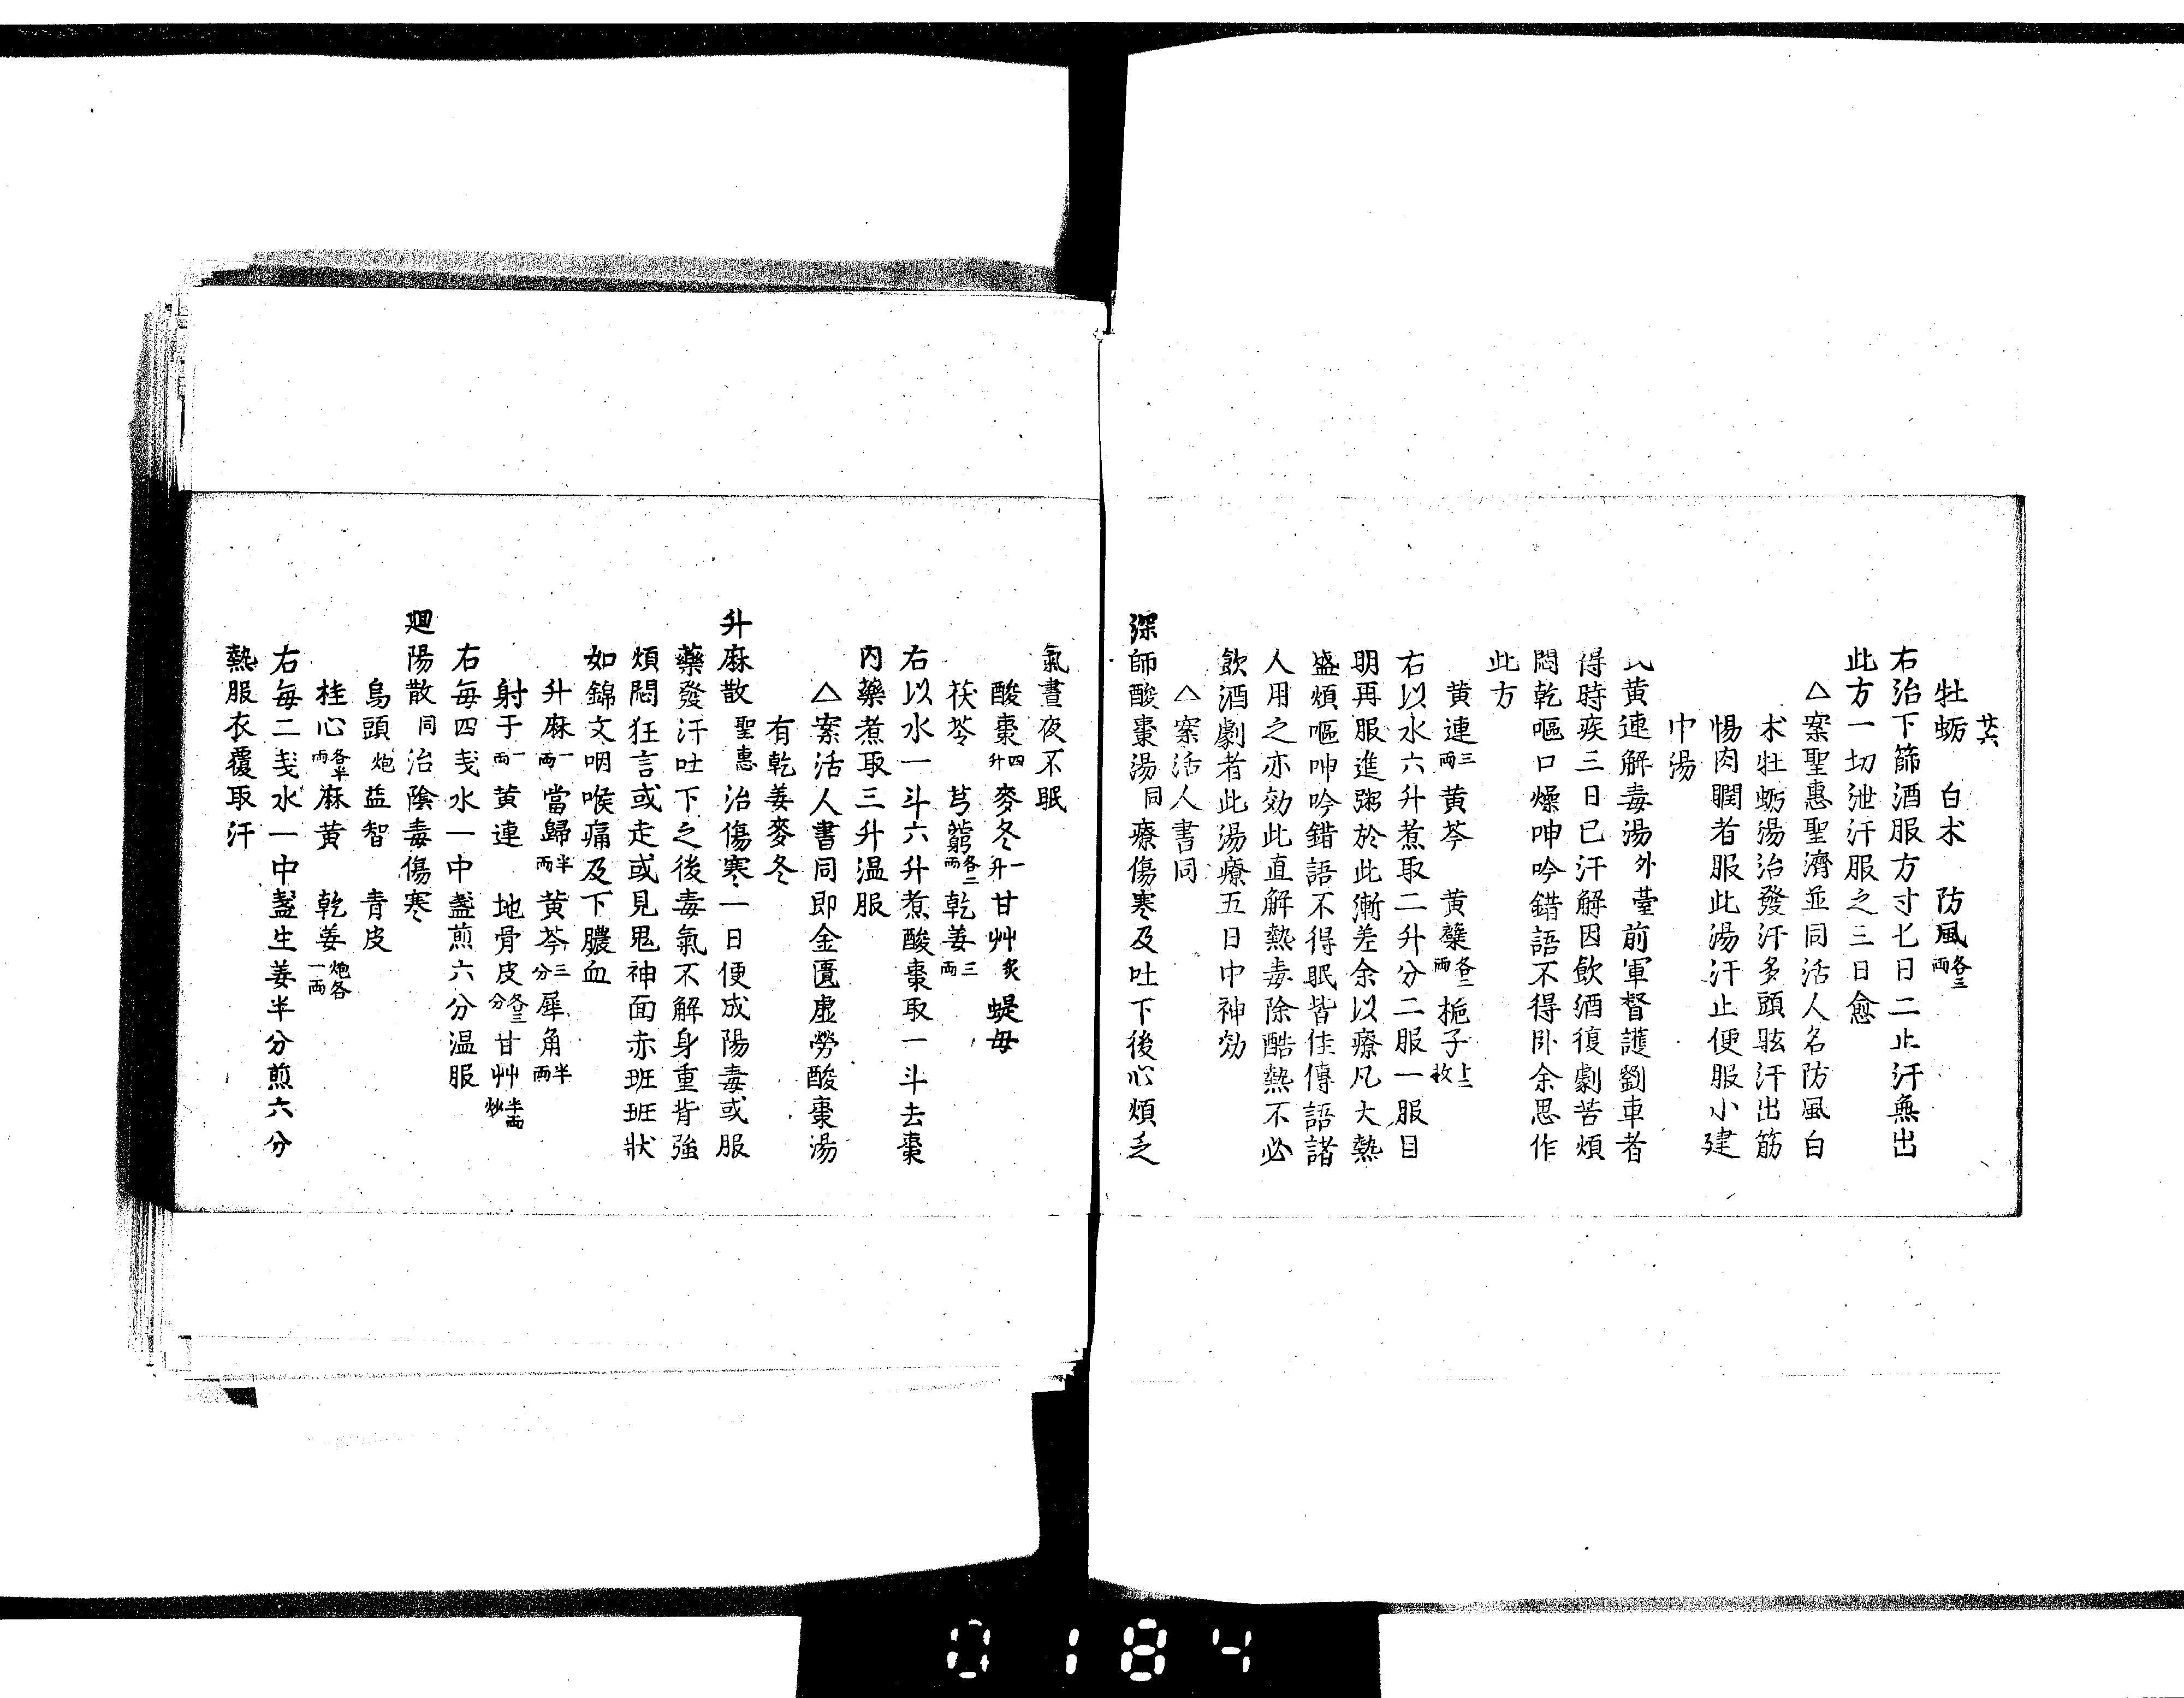 廿六
牡蛎　白朮　防風各三両
右治下篩酒服方寸匕日二止汗無出
此方一切泄汗服之三日愈
△案聖惠聖濟並同活人名防風白
朮牡蛎湯治發汗多頭眩汗出筋
惕肉瞤者服此湯汗止便服小建
中湯
黄連解毒湯外臺前軍督護劉車者
得時疾三日已汗解因飲酒復劇苦煩
悶乾嘔口燥呻吟錯語不得臥余思作
此方
黄連三両黄芩　黄蘗各二両梔子
右以水六升煮取二升分二服一服目
明再服進粥於此漸差余以療凡大熱
盛煩嘔呻吟錯語不得眠皆佳傳語諸
人用之亦効此直解熱毒除酷熱不必
飲酒劇者此湯療五日中神効
△案活人書同
深師酸棗湯同療傷寒及吐下後心煩乏
氣晝夜不眠
酸棗四升麥冬一升甘艸炙蝭母
茯苓　芎藭各二両乾姜三両
右以水一斗六升煮酸棗取一斗去棗
内藥煮取三升温服
△案活人書同即金匱虚勞酸棗湯
有乾姜麥冬
升麻散聖惠治傷寒一日便成陽毒或服
藥發汗吐下之後毒氣不解身重背強
煩悶狂言或走或見鬼神面赤班班狀
如錦文咽喉痛及下膿血
升麻一両當歸半両黄芩三分犀角半両
射于一両黄連　地骨皮各三分甘艸半両炒
右毎四戔水一中盞煎六分温服
廻陽散同治陰毒傷寒
烏頭炮益智　青皮
桂心各半両麻黄　乾姜炮各一両
右毎二戔水一中盞生姜半分煎六分
熱服衣覆取汗
0184